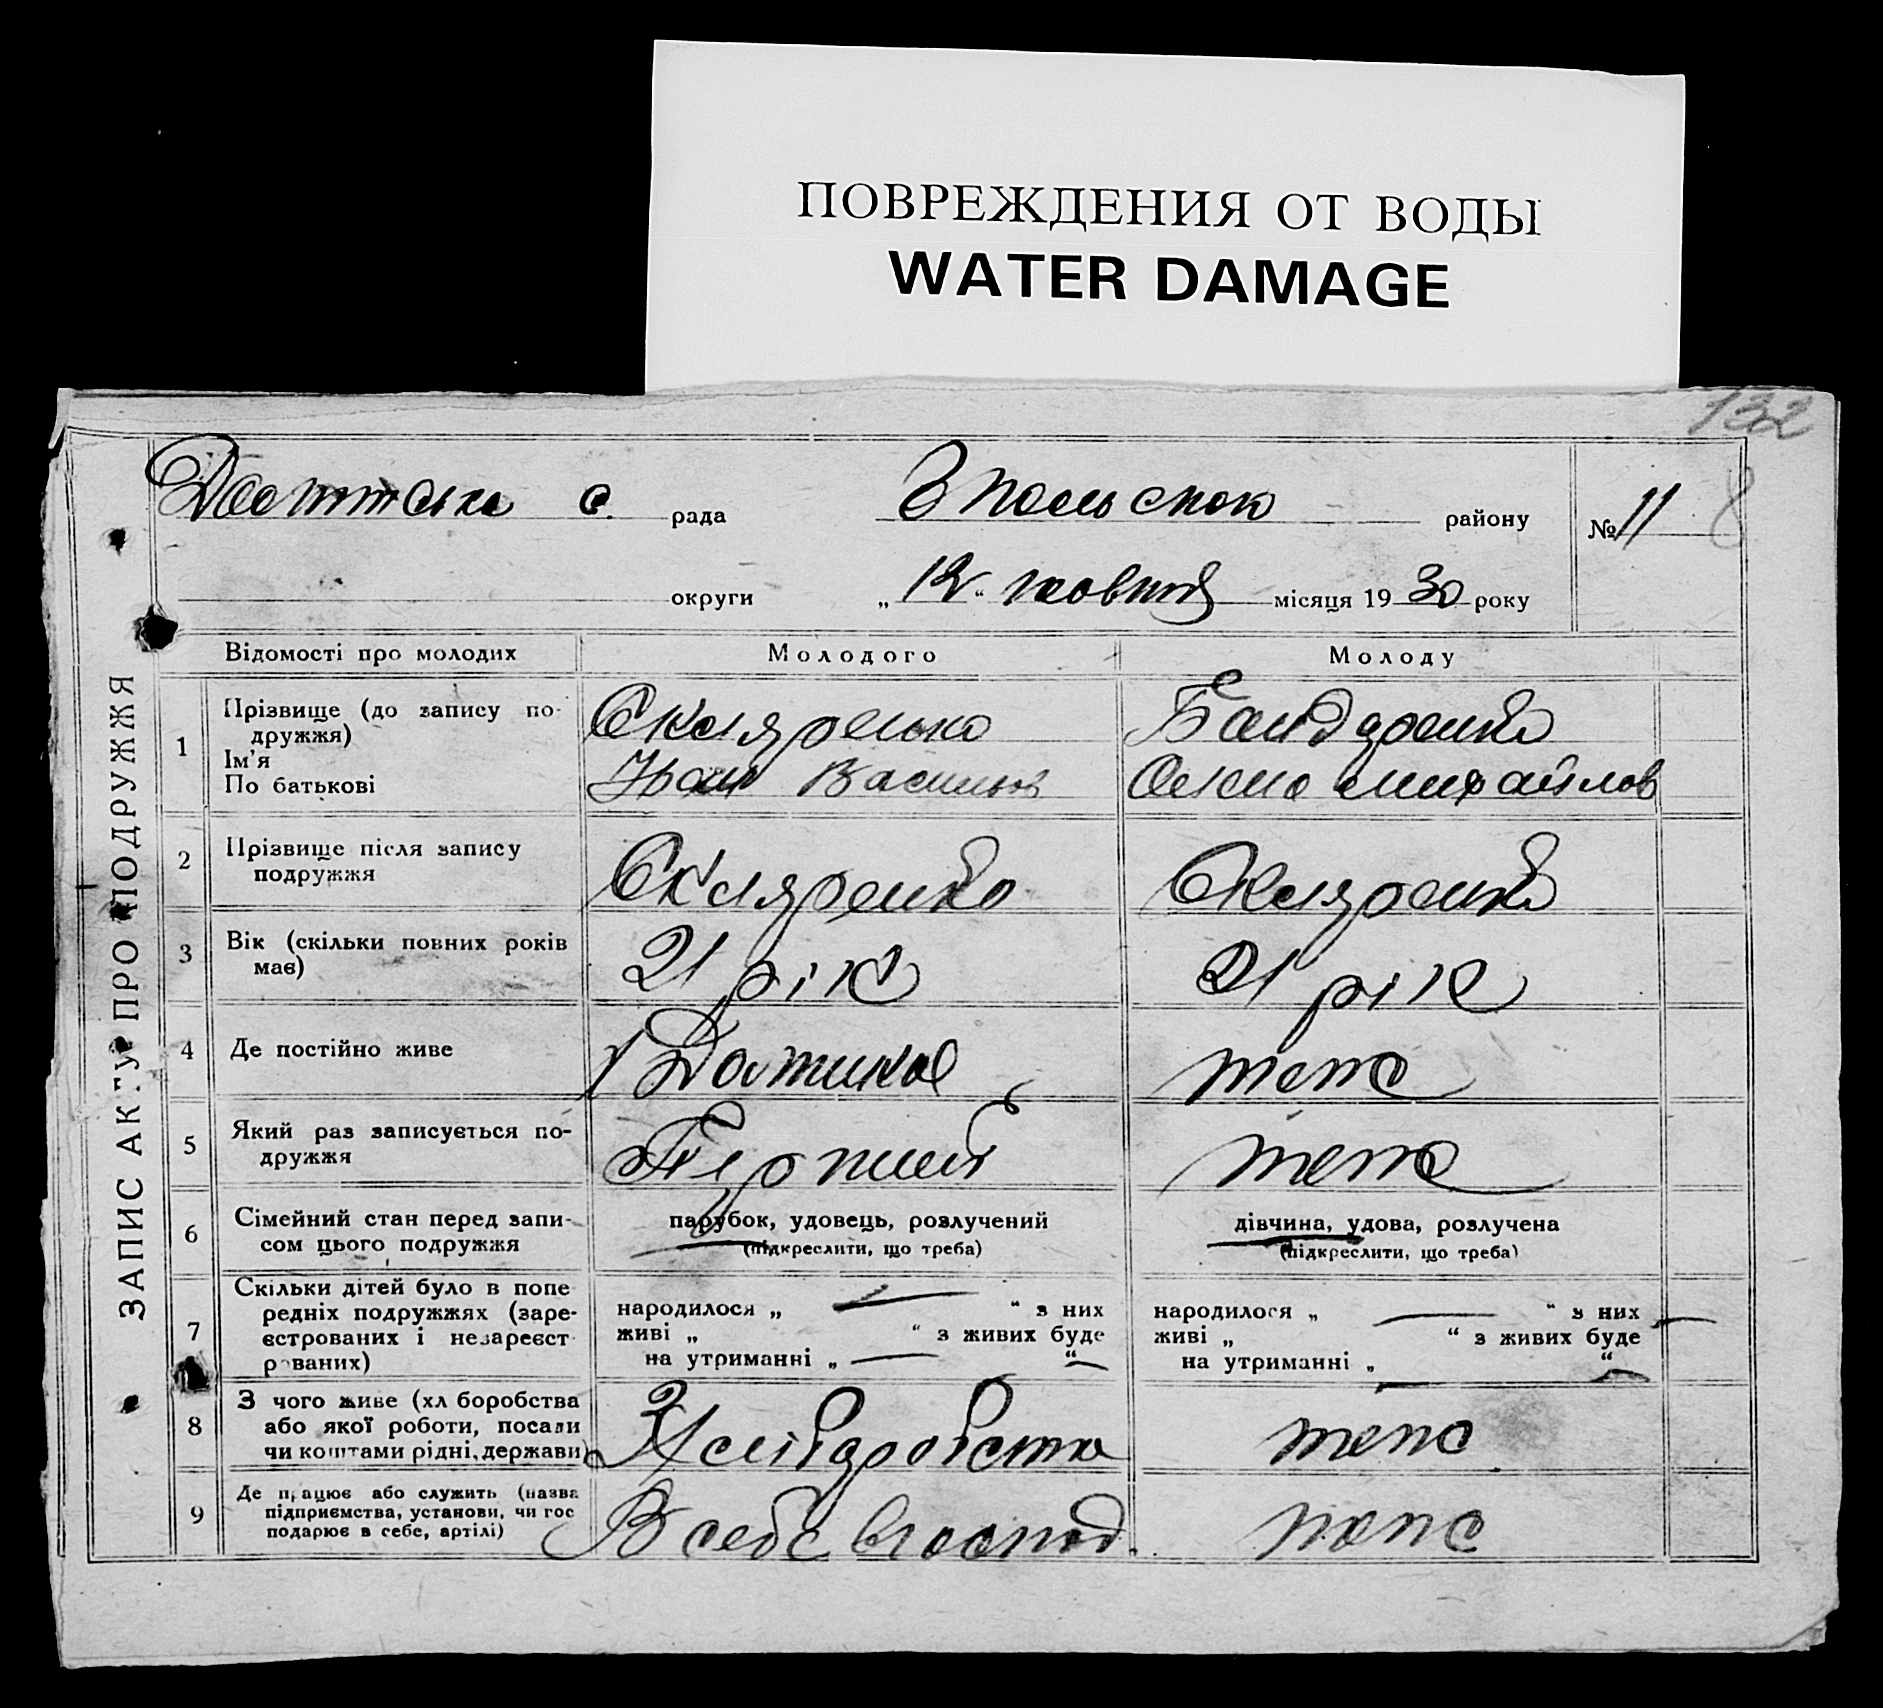 ПОВРЕЖДЕНИЯ ОТ ВОДЫ
WATER DAMAGE
132
с. рада
району
№ 11
8
округи „12“ жовтня місяця 1930 року
ЗАПИС АКТУ ПРО ПОДРУЖЖЯ
Відомості про молодих
Молодого
Молоду
1 Прізвище (до запису по-
дружжя)
Ім'я
По батькові
Скляренко
Іван Васильов
Бандуренко
михайлов
2 Прізвище після запису
подружжя
Скляренко
Скляренко
3 Вік (скільки повних років
має)
21 рік
21 рік
4 Де постійно живе
теж
5 Який раз записується по-
дружжя
Перший
теж
6 Сімейний стан перед запи-
сом цього подружжя
парубок, удовець, розлучений
(підкреслити, що треба)
дівчина, удова, розлучена
(підкреслити, що треба)
7 Скільки дітей було в попе
редніх подружжях (заре-
єстрованих і незареєст
рованих)
народилося „ — “ з них
живі „ “ з живих буде
на утриманні „ — “ —
народилося „ — “ з них —
живі „ “ з живих буде
на утриманні „ — “ —
8 З чого живе (хліборобства
або якої роботи, посади
чи коштами рідні, держави)
З
теж
9 Де працює або служить (назва
підприємства, установи, чи гос
подарює в себе, артілі)
В себе в господ.
теж